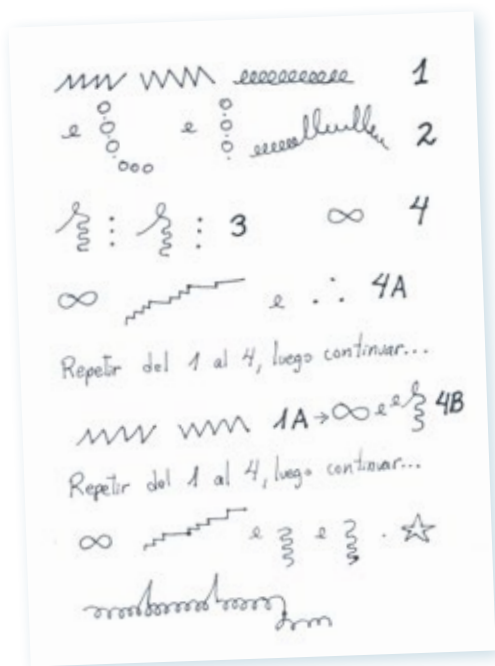 1
e e 2
3 ∞ 4
∞ e ∴ 4A
Repetir del 1 al 4, luego continuar...
1A → ∞ e e 4B
Repetir del 1 al 4, luego continuar...
∞ e e . ☆